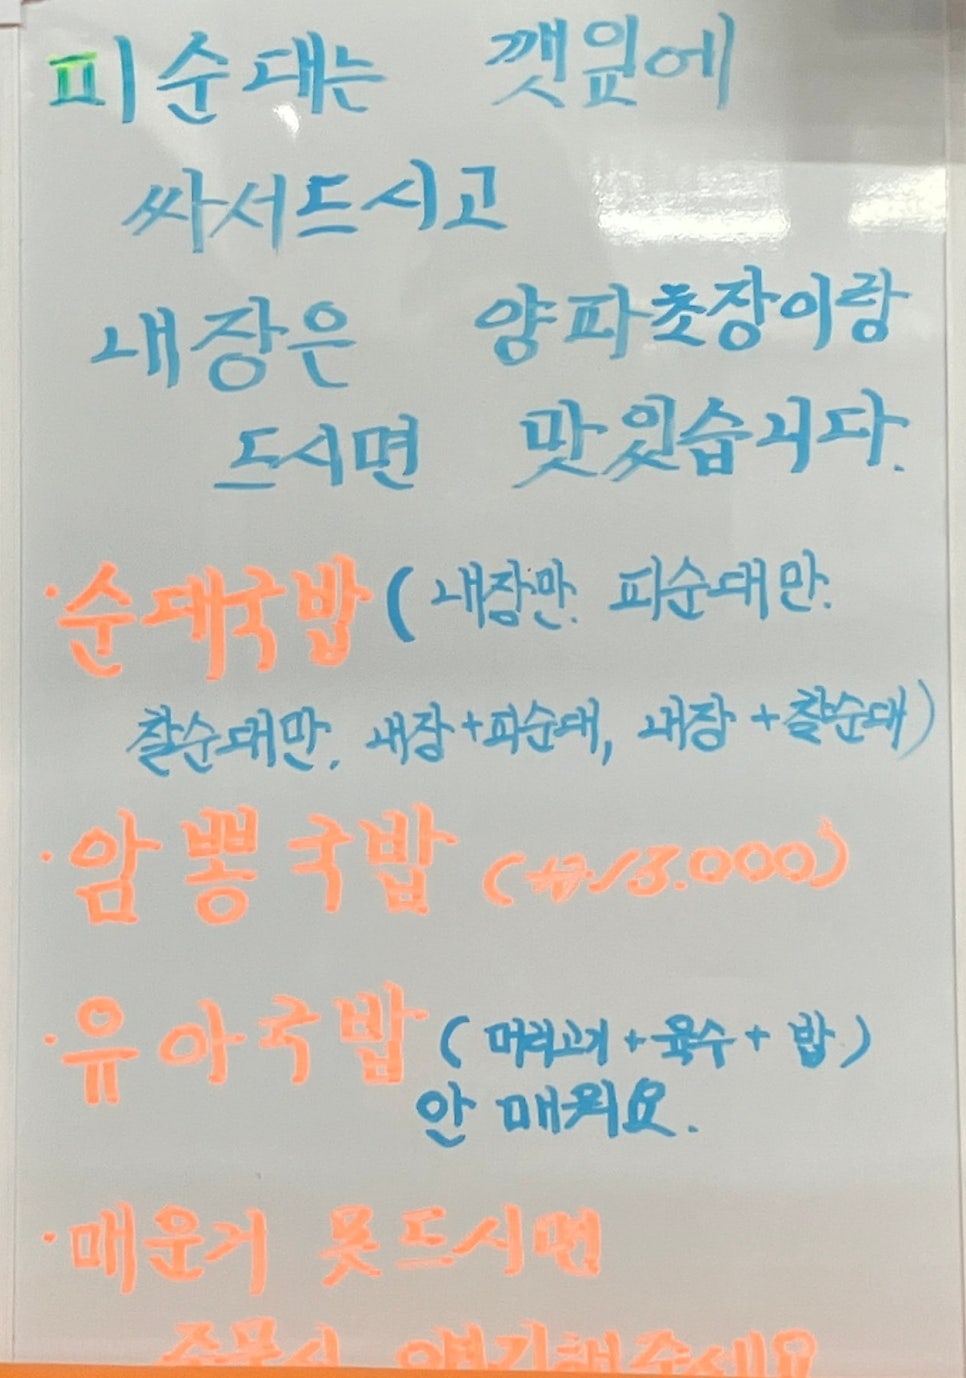 피순대는 깻잎에
싸서드시고
내장은 양파초장이랑
드시면 맛있습니다.
·순대국밥 (내장만. 피순대만.
찰순대만. 내장+피순대, 내장+찰순대)
·암뽕국밥 (₩13.000)
·유아국밥 (머리고기+육수+밥)
안 매워요.
·매운거 못드시면
주문시 얘기해주세요